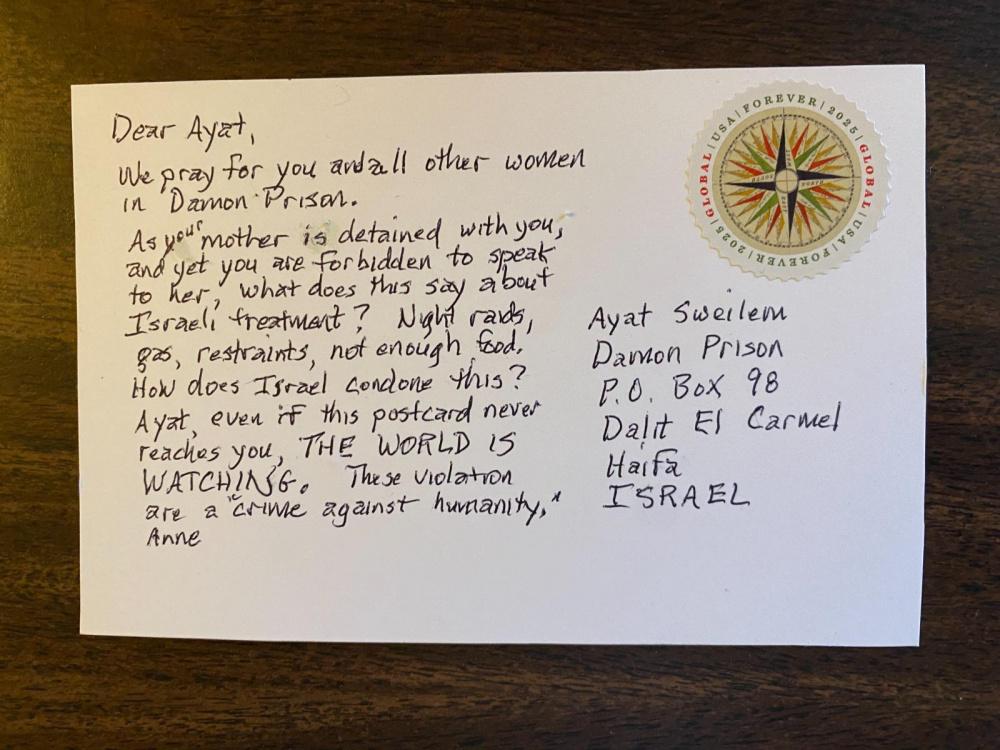 Dear Ayat,
We pray for you and all other women
in Damon Prison.
As your mother is detained with you,
and yet you are forbidden to speak
to her, what does this say about
Israeli treatment? Night raids,
gas, restraints, not enough food.
How does Israel condone this?
Ayat, even if this postcard never
reaches you, THE WORLD IS
WATCHING. These violation
are a "crime against humanity."
Anne
GLOBAL | USA | FOREVER | 2025 | GLOBAL | USA | FOREVER | 2025 |
Ayat Sweilem
Damon Prison
P.O. Box 98
Dalit El Carmel
Haifa
ISRAEL